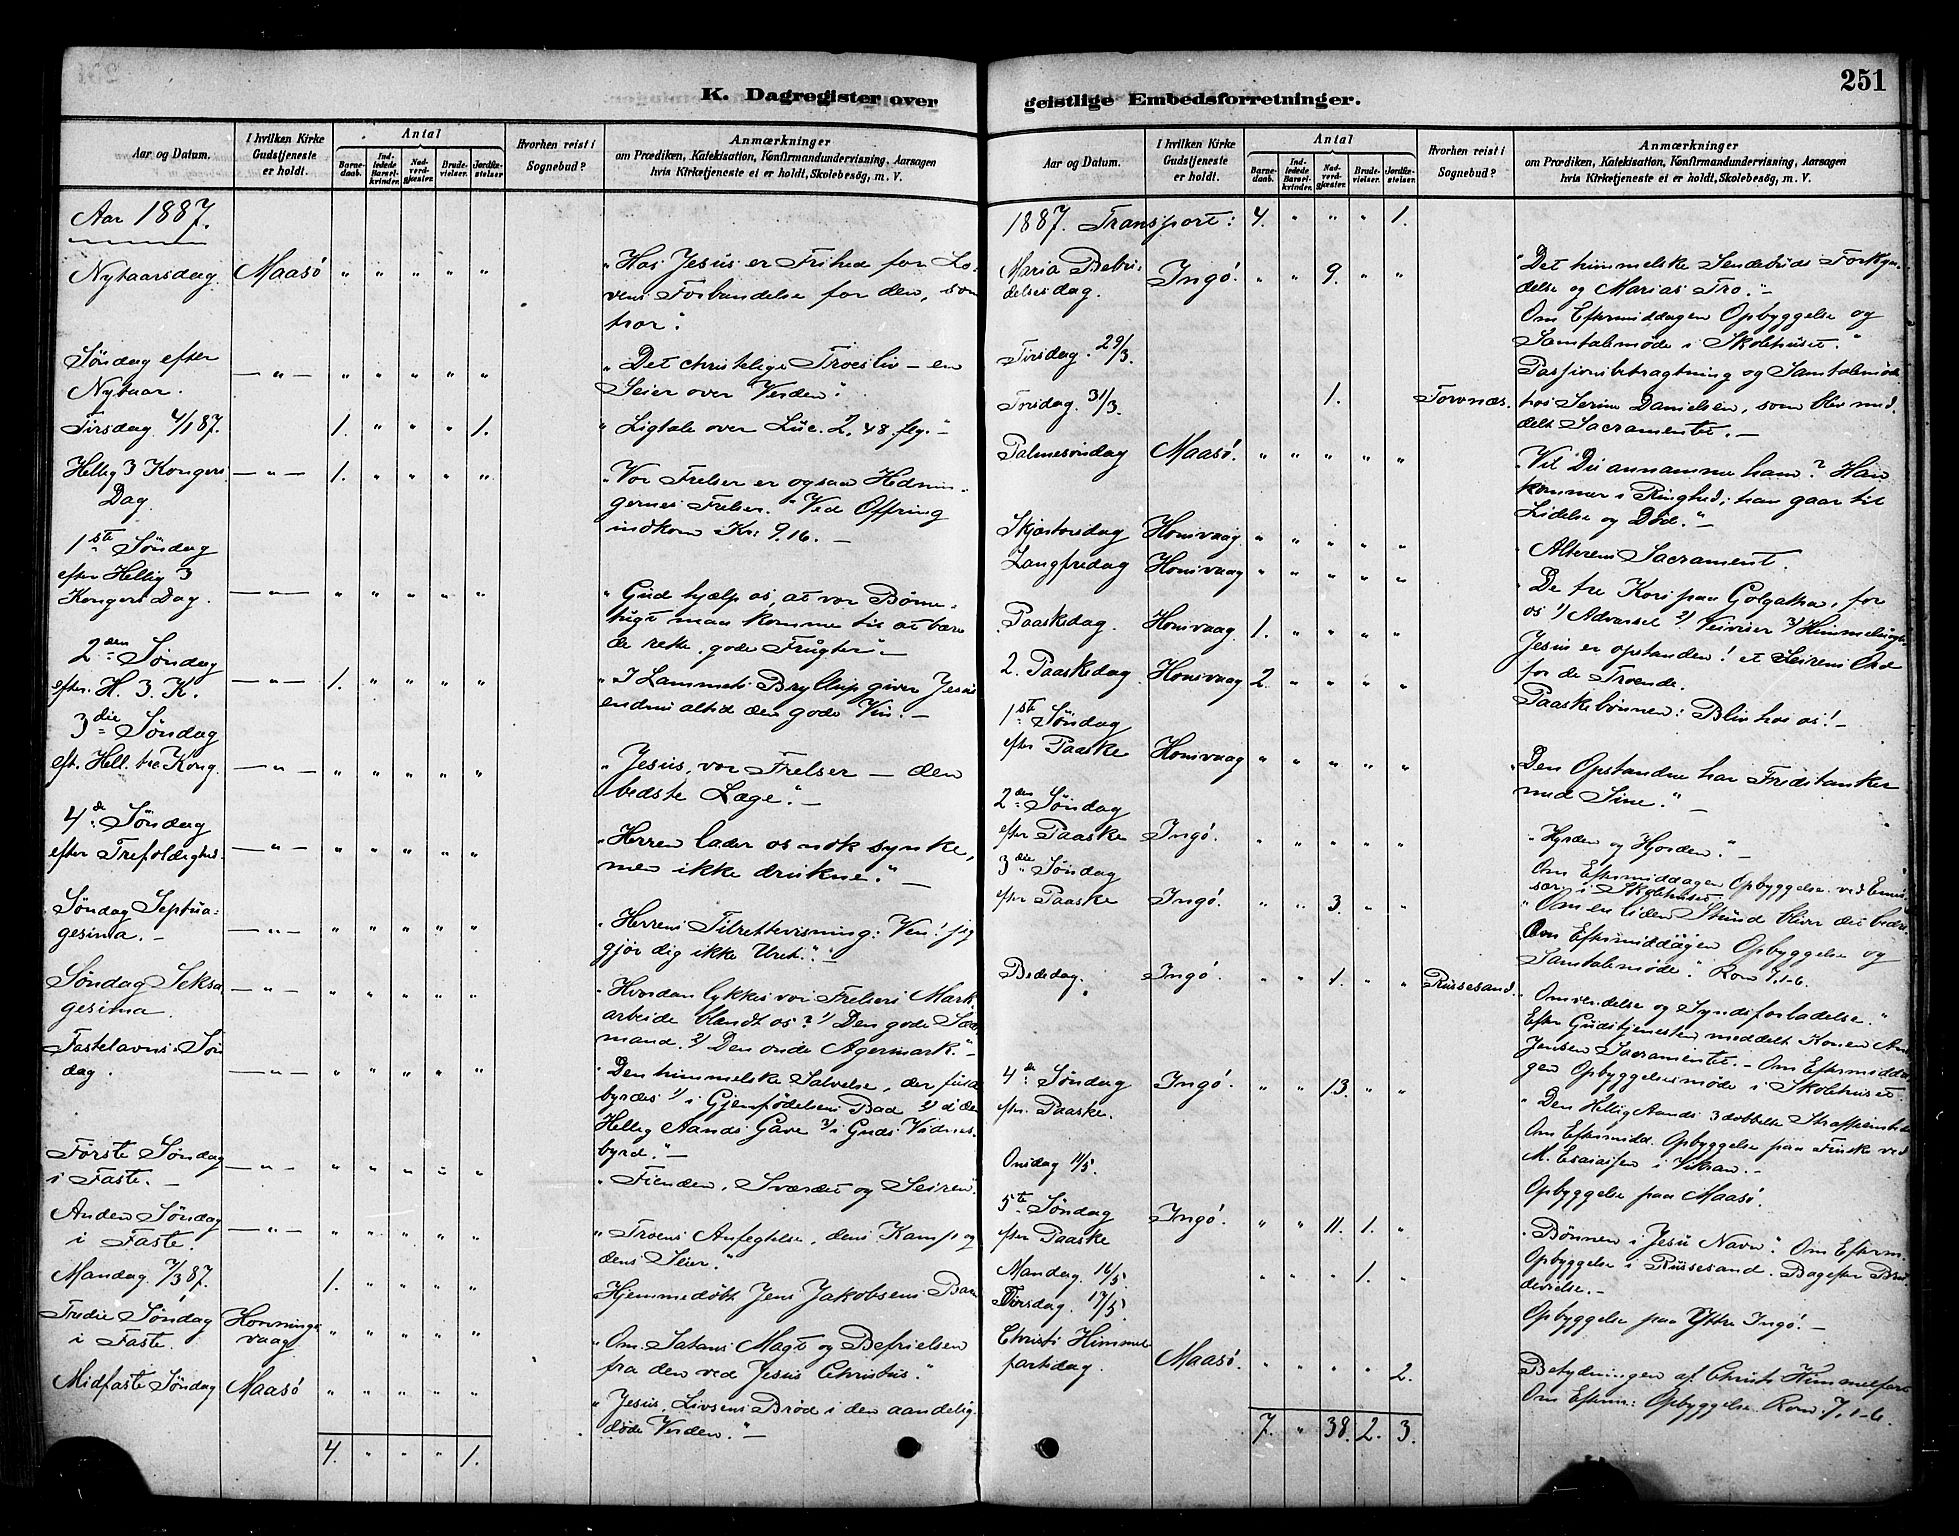 251
K. Dagregister over geistlige Embedsforretninger.
Aar og Datum.
I hvilken Kirke Gudstjeneste er holdt.
Antal
Barnedaab.
Indledede Barselkvinder.
Nadverdgjæster.
Brudevielser.
Jordfæstelser
Hvorhen reist i Sognebud?
Anmærkninger
om Prædiken, Katekisation, Konfirmandundervisning, Aarsagen
hvis Kirketjeneste ei er holdt, Skolebesøg, m. V.
Aar 1887.
Nytaarsdag. Maasö " " " " " "Hos Jesus er Frihed for Lo-
vens Forbandelse for den, som
tror."
Söndag efter
Nytaar. — " — " " " " " "Det christelige Troesliv – en
Seier over Verden."
Tirsdag 4/1 87. 1. " " " 1. "Ligtale over Luc. 2, 48. flg."
Hellig 3 Kongers
Dag — " — 1. " " " " "Vor Frelser er ogsaa Hednin-
gernes Frelser." Ved Offring
indkom Kr. 9.16. —
1ste Söndag
efter Hellig 3
Kongers Dag. — " — " " " " " "Gud hjælp os, at vor Börne-
tugt maa komme til at bære
de rette, gode Frugter" —
2den Söndag
efter H. 3. K. — " — 1. " " " " "I Lammets Bryllup giver Jesus
endnu altid den gode Vin." —
3die Söndag
eft. Hell. tre Kong. — " — " " " " " "Jesus, vor Frelser – den
bedste Læge." —
4de Söndag
efter Trefoldighed. — " — " " " " " "Herren lader os nok synke,
men ikke drukne." —
Söndag Septua-
gesima. — — " — " " " " " "Herrens Tilrettevisning: Ven! jeg
gjör dig ikke Uret." —
Söndag Seksa-
gesima. — " — " " " " " "Hvordan lykkes vor Frelsers Mark-
arbeide blandt os? 1/ Den gode Sæd-
mand. 2/ Den onde Agermark." —
Fastelavns Sön
dag. — " — " " " " " "Den himmelske Salvelse, der
byrdes 1/ i Gjenfödelsens Bad 2/ i den
Hellig Aands Gave 3/ i Guds Vidnes-
byrd." —
Förste Söndag
i Faste. — — " — " " " " " "Fienden, Sværdet og Seiren".
Anden Söndag
i Faste. — " — " " " " " "Troens Anfegtelse, dens Kamp og
dens Seier."
Mandag 7/3 87. 1. " " " " Hjemmedöbt Jens Jakobsens Barn
Tredie Söndag
i Faste. Honnings
vaag " " " " " "Om Satans Magt og Befrielsen
fra den ved Jesus Christus."
Midfaste Söndag Maasö " " " " " "Jesus, Livsens Bröd i den aandelig
döde Verden." —
4. " " " 1.
Aar og Datum.
I hvilken Kirke Gudstjeneste er holdt.
Antal
Barnedaab.
Indledede Barselkvinder.
Nadverdgjæster.
Brudevielser.
Jordfæstelser
Hvorhen reist i Sognebud?
Anmærkninger
om Prædiken, Katekisation, Konfirmandundervisning, Aarsagen
hvis Kirketjeneste ei er holdt, Skolebesøg, m. V.
1887. Transport: 4. " " " 1.
Maria Bebu-
delses dag. Ingö. " " 9. " " "Det himmelske Sendebuds Forkyn-
delse og Marias Tro." —
Om Eftermiddagen Opbyggelse og
Tirsdag 29/3. Samtalemöde i Skolehuset."
Passionsbetragtning og Samtalemöde
Torsdag 31/3. 1. hos Serine Danielsen, som blev med-
delt Sacramentet. —
Palmesöndag Maasö. " " " " " "Vil Du annamme ham? Han
kommer i Ringhed; han gaar til
Lidelse og Död." —
Skjærtorsdag Honsvaag. " " " " " "Alterens Sacrament.
Langfredag Honsvaag " " " " " "De tre Kors paa Golgatha, for
os 1/ Advarsel 2/ Veiviser 3/
Paaskedag. Honsvaag. 1. " " " " Jesus er opstanden! et Seirens Ord
for de Troende.
2. Paaskedag. Honsvaag 2. " " " " Paaskebönnen: Bliv hos os! —
1ste Söndag
efter Paaske Honsvaag " " " " " "Den Opstandne har Fredstanker
med Sine." —
2den Söndag
efter Paaske Ingö. " " " " " "Hyrden og Hjorden." —
Om Eftermiddagen Opbyggelse ved Emis-
sær i Skolehuset
3die Söndag
efter Paaske Ingö. " " 3. " " "Om en liden Stund bliver det bedre.
Om Eftermiddagen Opbyggelse og
Samtalemöde." Rom 7,1-6.
Bededag. Ingö. " " 1. " " Russesand. "Omvendelse og Syndsforladelse."
Efter Gudstjenesten meddelt Konen
Jensen Sacramentet. — Om Eftermidda-
gen Opbyggelsesmöde i Skolehuset.
4de Söndag
eft. Paaske. Ingö. " " 13. " " "Den Hellig Aands 3dobbelte
Om Eftermidd. Opbyggelse paa Finske ved
M. Esaiassen i Vikran. —
Onsdag 11/5. Opbyggelse paa Maasö.
5te Söndag
efter Paaske Ingö. " " 11. 1. " "Bönnen i Jesu Navn." Om Efterm.
Opbyggelse i Russesand. Bagefter Bru-
devielse. —
Mandag 16/5 " " " 1. "
Tirsdag. 17/5 Opbyggelse paa Yttre Ingö. —
Christi Himmel-
fartsdag. Maasö. " " " " 2. Betydningen af Christi Himmelfart
Om Efterm: Opbyggelse. Rom. 7,1-6.
7. " 38. 2. 3.